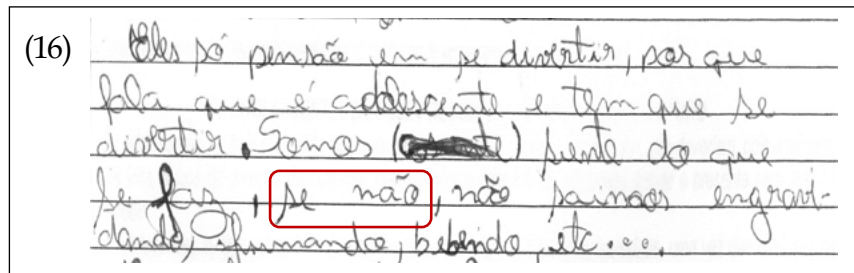 (16) Eles só pensão em se divertir, por que
fala que é adolescente e tem que se
divertir. Somos ( ) siente do que
se faz, se não, não saimos engravi-
dando, fumando, bebendo, etc...